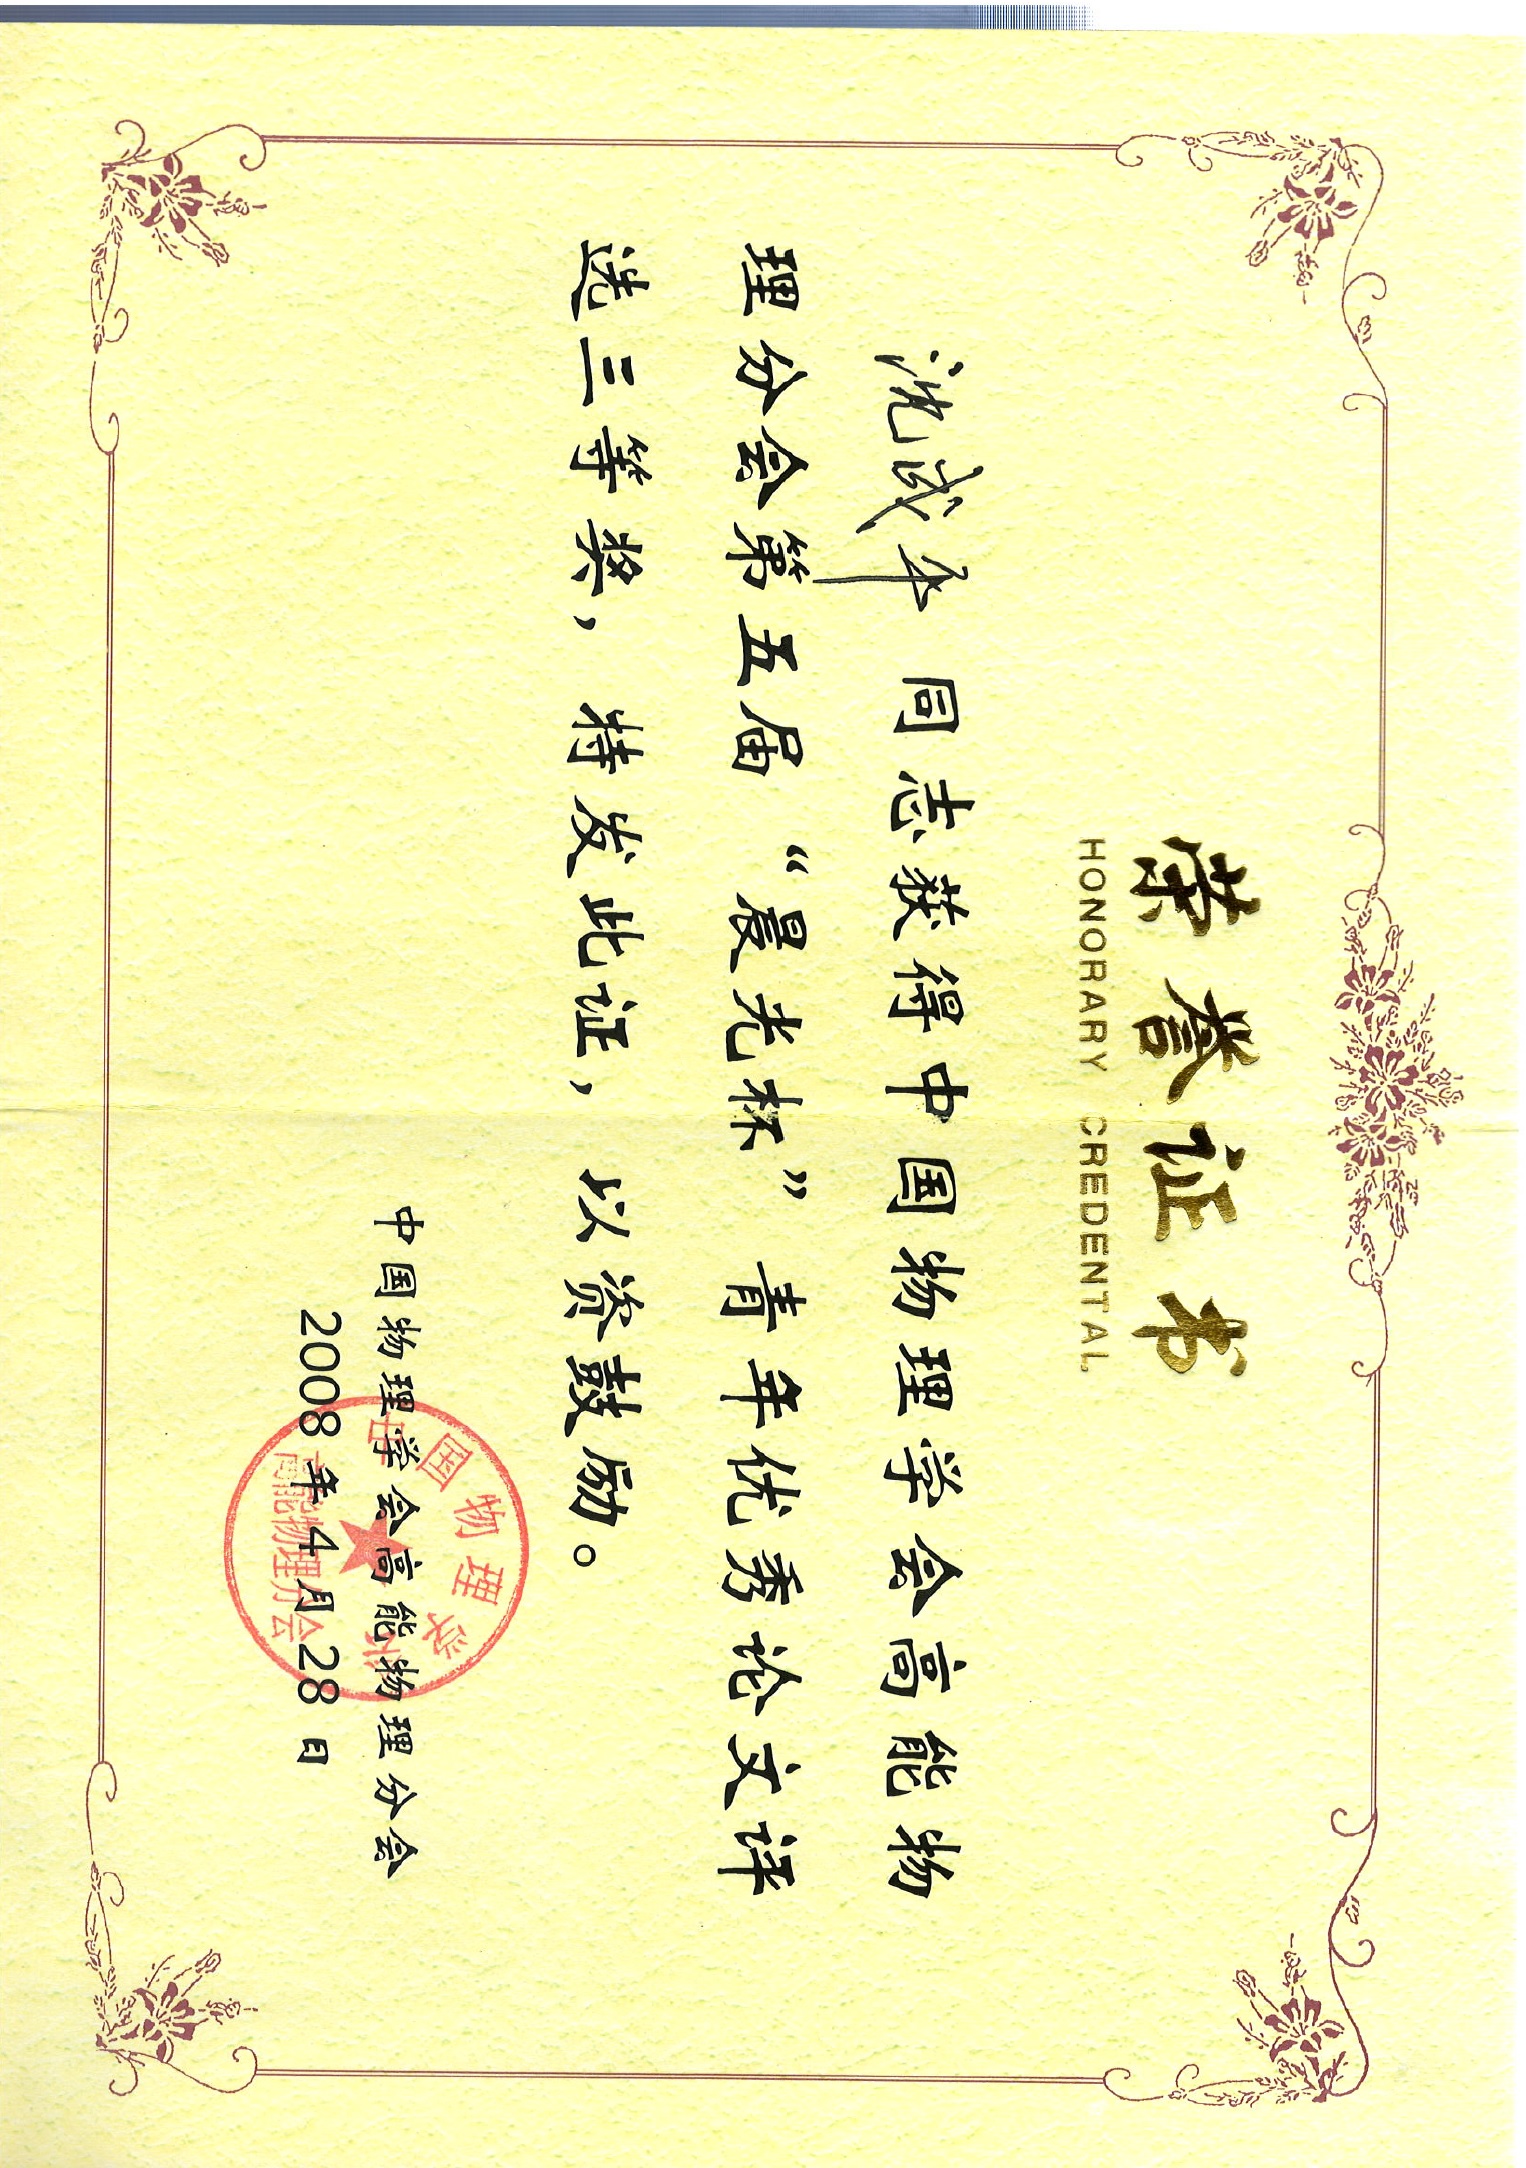 荣誉证书
HONORARY CREDENTIAL
沈成平 同志获得中国物理学会高能物
理分会第五届“晨光杯”青年优秀论文评
选三等奖，特发此证，以资鼓励。
中国物理学会高能物理分会
2008年4月28日
中国物理学会
高能物理分会